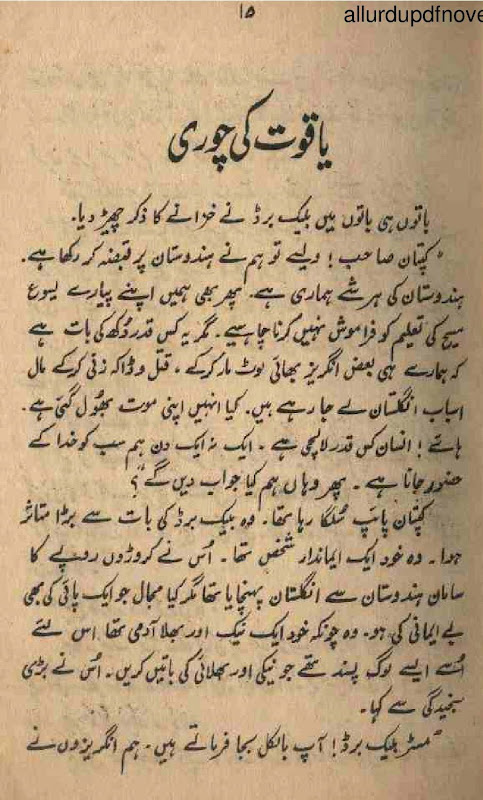 ۱۵
allurdupdfnove
یاقوت کی چوری
باتوں ہی باتوں میں بلیک برڈ نے خزانے کا ذکر چھیڑ دیا۔
"کپتان صاحب! ویسے تو ہم نے ہندوستان پر قبضہ کر رکھا ہے۔
ہندوستان کی ہر شے ہماری ہے۔ پھر بھی ہمیں اپنے پیارے یسوع
مسیح کی تعلیم کو فراموش نہیں کرنا چاہیے۔ مگر یہ کس قدر دُکھ کی بات ہے
کہ ہمارے ہی بعض انگریز بھائی لوٹ مار کر کے، قتل و ڈاکہ زنی کر کے مال
اسباب انگلستان لے جا رہے ہیں۔ کیا انہیں اپنی موت بھُول گئی ہے۔
ہائے! انسان کس قدر لالچی ہے۔ ایک نہ ایک دن ہم سب کو خدا کے
حضور جانا ہے۔ پھر وہاں ہم کیا جواب دیں گے"؟
کپتان پائپ سُلگا رہا تھا۔ وہ بلیک برڈ کی بات سے بڑا متاثر
ہوا۔ وہ خود ایک ایماندار شخص تھا۔ اُس نے کروڑوں روپے کا
سامان ہندوستان سے انگلستان پہنچایا تھا مگر کیا مجال جو ایک پائی کی بھی
بے ایمانی کی ہو۔ وہ چونکہ خود ایک نیک اور بھلا آدمی تھا اس لئے
اُسے ایسے لوگ پسند تھے جو نیکی اور بھلائی کی باتیں کریں۔ اُس نے بڑی
سنجیدگی سے کہا۔
"مسٹر بلیک برڈ! آپ بالکل بجا فرماتے ہیں۔ ہم انگریزوں نے